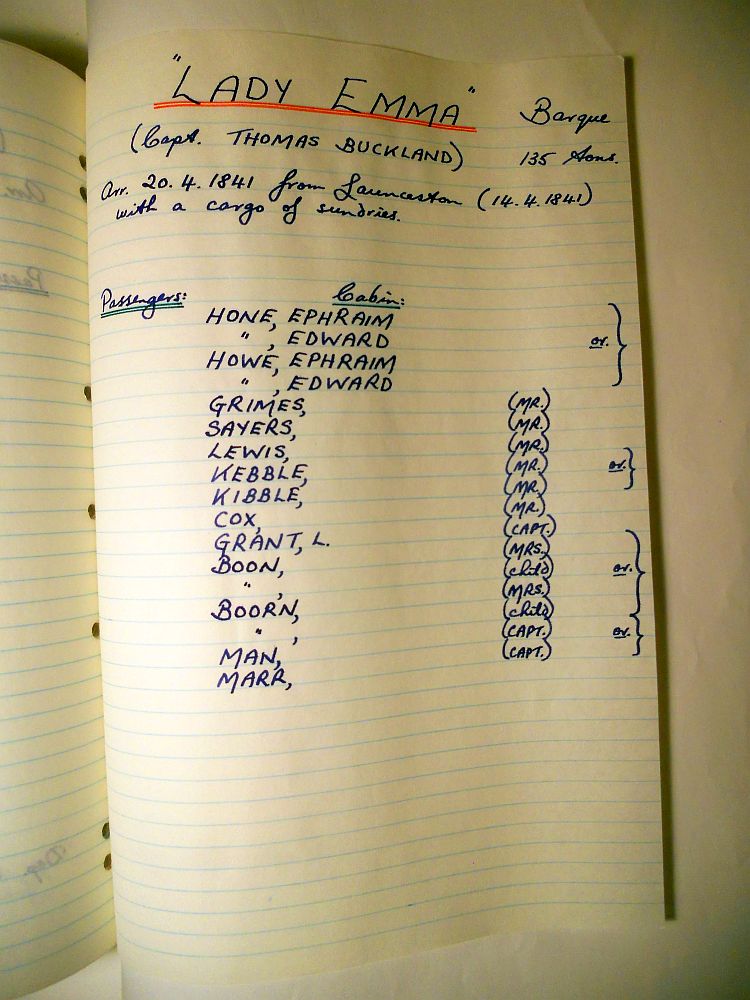 "LADY EMMA" Barque
(Capt. THOMAS BUCKLAND) 135 tons.
Arr. 20.4.1841 from Launceston (14.4.1841)
with a cargo of sundries.
Passengers: Cabin:
HONE, EPHRAIM
" , EDWARD or.
HOWE, EPHRAIM
" , EDWARD
GRIMES, (MR.)
SAYERS, (MR.)
LEWIS, (MR.)
KEBBLE, (MR.) or.
KIBBLE, (MR.)
COX, (MR.)
GRANT, L. (CAPT.)
BOON, (MRS.)
" , (child) or.
BOORN, (MRS.)
" , (child)
MAN, (CAPT.) or.
MARR, (CAPT.)